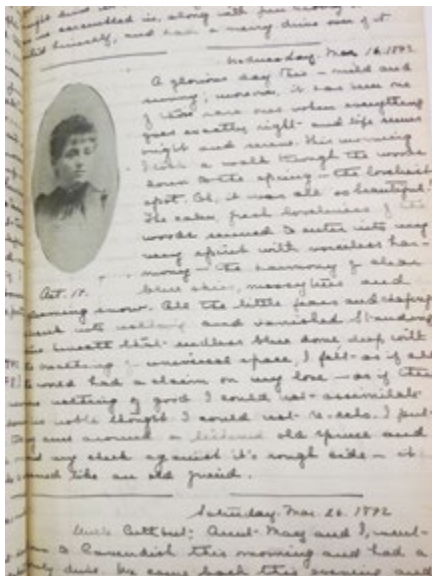 we assembled in, along with
and had a merry drive over it.
Wednesday, Mar. 16, 1892
A glorious day this - mild and
sunny; moreover, it has been one
of those rare ones when everything
goes exactly right and life seems
bright and serene. This morning
I took a walk through the woods
down to the spring - the loveliest
spot. Oh, it was all so beautiful!
The calm, fresh loveliness of the
woods seemed to enter into my
very spirit with voiceless har-
mony - the harmony of clear
blue skies, mossy trees and
gleaming snow. All the little fears and chafing
shrank into nothing and vanished. Standing
beneath that endless blue dome, deep with
universal space, I felt as if all
the world had a claim on my love - as if there
were nothing of good I could not assimilate
noble thought I could not re-echo. I put
my arm around a lichened old spruce and
laid my cheek against it's rough side - it
seemed like an old friend.
Aet. 17.
Saturday, Mar. 26, 1892
Uncle Cuthbert, Aunt May and I, went
down to Cavendish this morning and had a
lovely drive. We came back this evening and